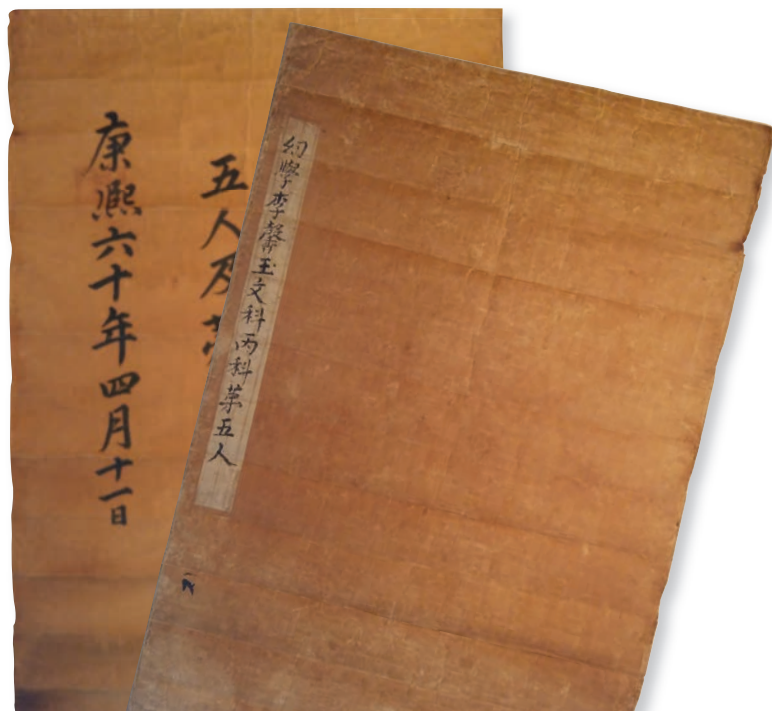 幼學李馨玉文科丙科苐五人
五人及
康熙六十年四月十一日